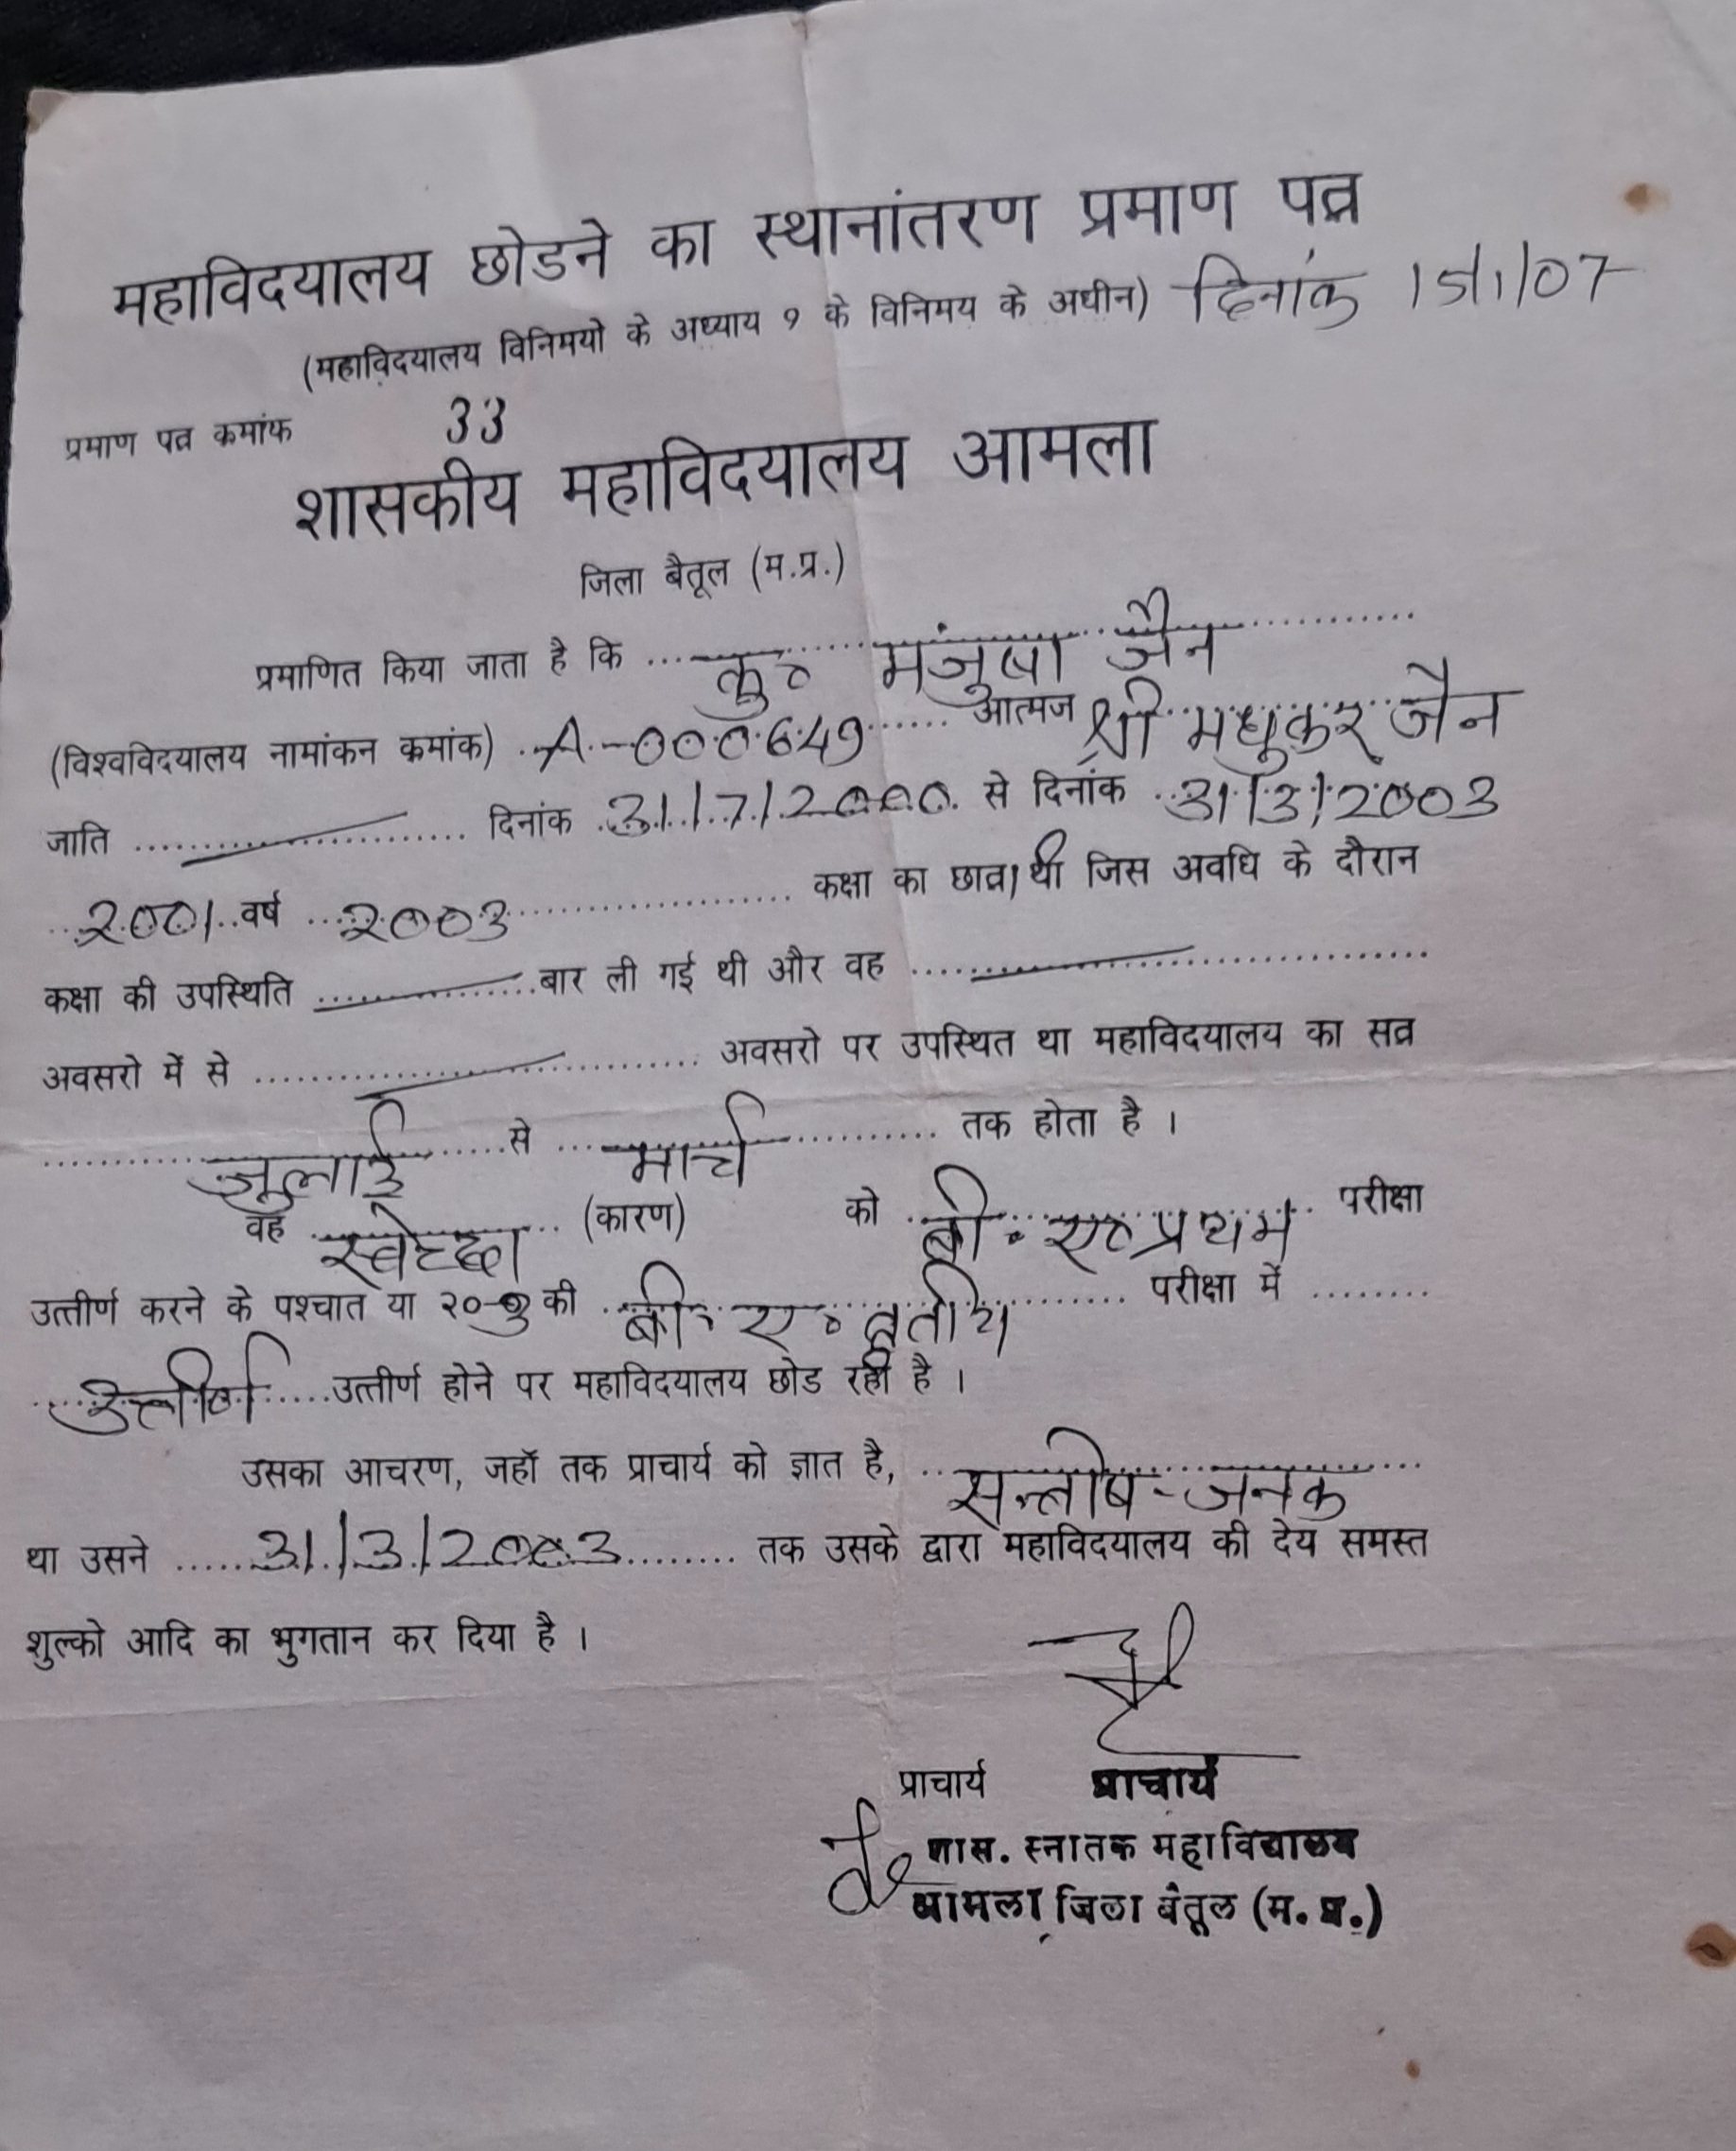 महाविदयालय छोडने का स्थानांतरण प्रमाण पत्र
(महाविदयालय विनिमयो के अध्याय 9 के विनिमय के अधीन) दिनांक 15/1/07
प्रमाण पत्र कमांक 33
शासकीय महाविदयालय आमला
जिला बैतूल (म.प्र.)
प्रमाणित किया जाता है कि ... कु० मंजुषा जैन ...
(विश्वविदयालय नामांकन क्रमांक) A-000649 ...... आत्मज श्री मधुकर जैन
जाति ............ दिनांक 31/7/2000 से दिनांक 31/3/2003
2001 वर्ष 2003 ............ कक्षा का छात्रा थी जिस अवधि के दौरान
कक्षा की उपस्थिति ............ बार ली गई थी और वह ............
अवसरो में से ............ अवसरो पर उपस्थित था महाविदयालय का सत्र
जुलाई से मार्च ............ तक होता है ।
वह स्वेच्छा (कारण) को बी.ए० प्रथम परीक्षा
उत्तीर्ण करने के पश्चात या २०-03 की बी. ए० तृतीय ...... परीक्षा में ........
उत्तीर्ण ..... उत्तीर्ण होने पर महाविदयालय छोड रही है ।
उसका आचरण, जहॉ तक प्राचार्य को ज्ञात है, सन्तोष-जनक
था उसने ..... 31/3/2003 ........ तक उसके द्वारा महाविदयालय की देय समस्त
शुल्को आदि का भुगतान कर दिया है ।
प्राचार्य प्राचार्य
शास. स्नातक महाविद्यालय
आमला जिला बैतूल (म. प्र.)